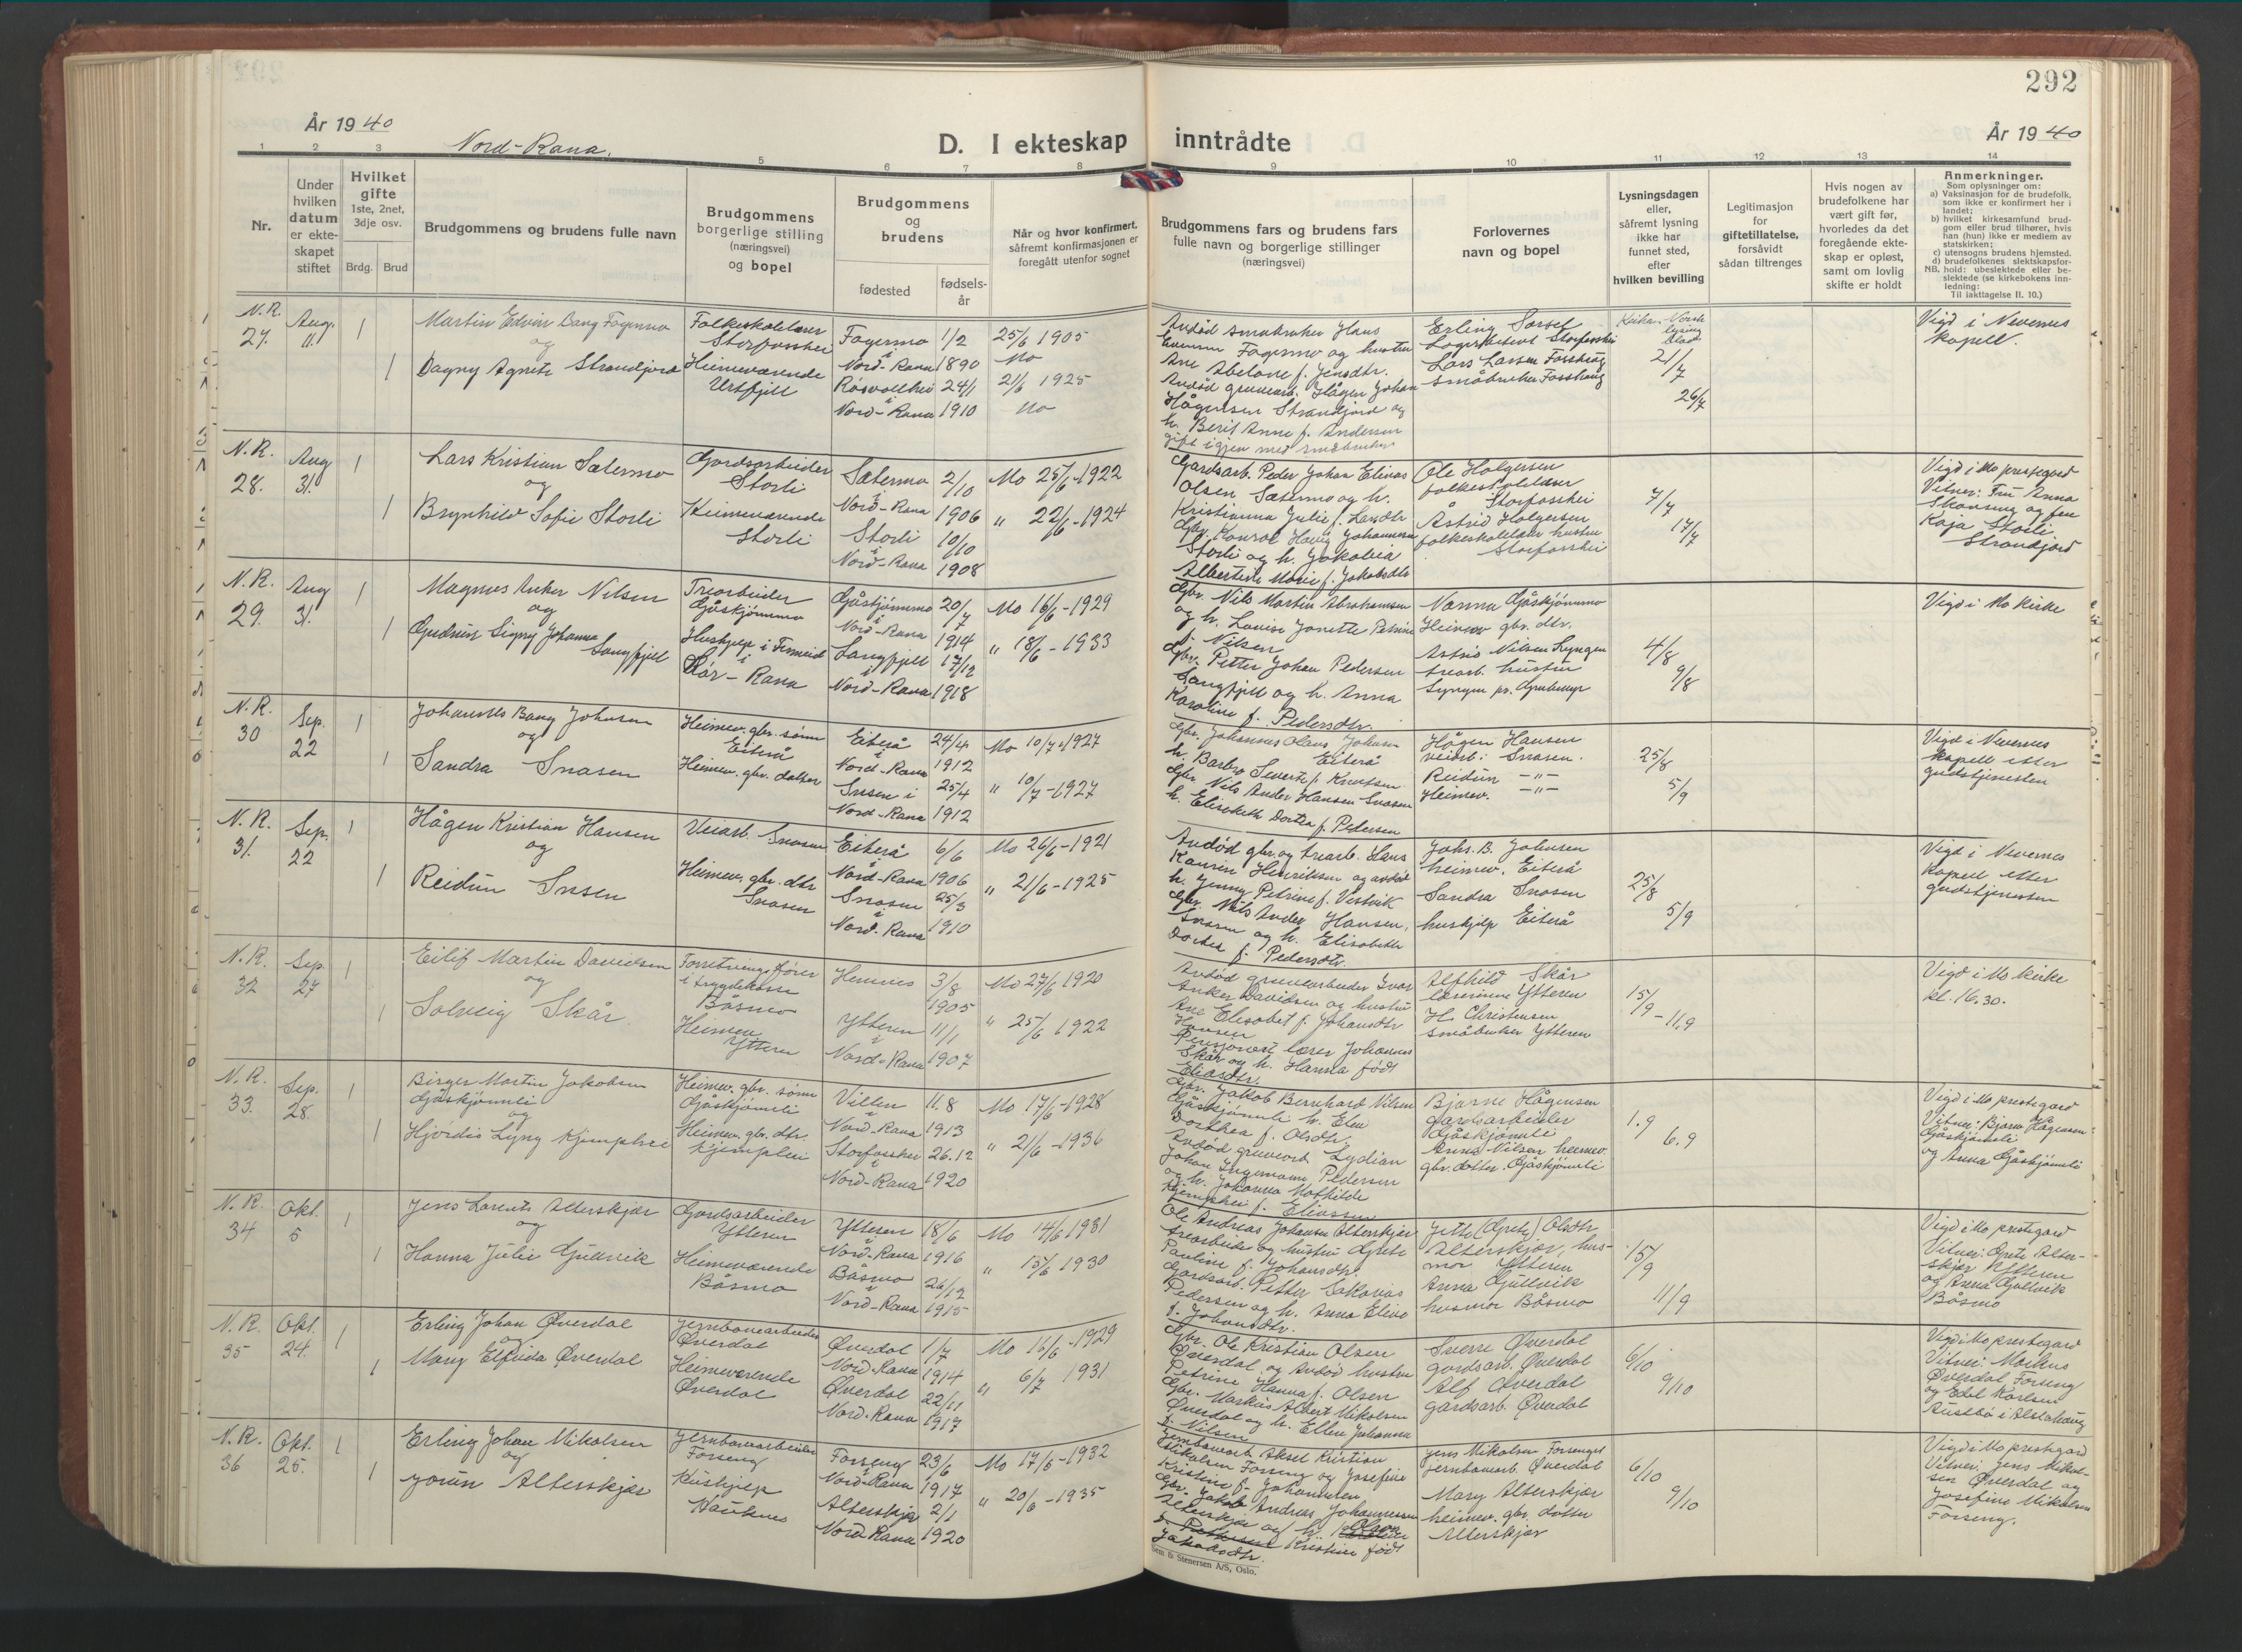 292
År 1940
Nord-Rana.
D. I ekteskap inntrådte
År 1940
1 2 3 5 6 7 8 9 10 11 12 13 14
Nr.
Under
hvilken
datum
er ekte-
skapet
stiftet
Hvilket
gifte
1ste, 2net,
3dje osv.
Brdg. Brud
Brudgommens og brudens fulle navn
Brudgommens
borgerlige stilling
(næringsvei)
og bopel
Brudgommens
og
brudens
fødested
fødsels-
år
Når og hvor konfirmert,
såfremt konfirmasjonen er
foregått utenfor sognet
Brudgommens fars og brudens fars
fulle navn og borgerlige stillinger
(næringsvei)
Forlovernes
navn og bopel
Lysningsdagen
eller,
såfremt lysning
ikke har
funnet sted,
efter
hvilken bevilling
Legitimasjon
for
giftetillatelse,
forsåvidt
sådan tiltrenges
Hvis nogen av
brudefolkene har
vært gift før,
hvorledes da det
foregående ekte-
skap er opløst,
samt om lovlig
skifte er holdt
Anmerkninger.
Som oplysninger om:
a) Vaksinasjon for de brudefolk,
som ikke er konfirmert her i
landet;
b) hvilket kirkesamfund brud-
gom eller brud tilhører, hvis
han (hun) ikke er medlem av
statskirken;
c) utensogns brudens hjemsted.
d) brudefolkenes slektskapsfor-
hold: ubeslektede eller be-
slektede (se kirkebokens inn-
ledning:
NB.
Til iakttagelse II. 10.)
N.R.
27.
Aug.
11.
1
1
Martin Edvin Bang Fagermo
og
Dagny Agnete Strandjord
Folkeskolelærer
Storfosshei
Heimeværende
Urtfjell
Fagermo
i
Nord-Rana
Røsvollhei
i
Nord-Rana
1/2
1890
24/1
1910
25/6 1905
Mo
21/6 1925
Mo
Avdød småbruker Hans
Fagermo og hustru
Ane Abelone f. Jensdtr.
Avdød gruvearb. Hågen Johan
Hågensen Strandjord og
h. Berit Anna f. Andersen
gift igjen med småbruker
Erling Sorsel
Storfosshei
Lars Larsen Fosshaug
småbruker Fosshaug
21/7
26/7
Vigd i Nevernes
kapell.
N.R.
28.
Aug
31.
1
1
Lars Kristian Sætermo
og
Brynhild Sofie Storli
Gardsarbeider
Storli
Heimeværende
Storli
Sætermo
i
Nord-Rana
Storli
i
Nord-Rana
2/10
1906
10/10
1908
Mo 25/6-1922
" 22/6-1924
Gardsarb. Peder Johan Elias
Olsen Sætermo og h.
Kristianna Julie f. Larsdtr
Gbr. Konrad Havig Johannesen
Storli og h. Jakobia
Albertine Marie f. Jakobsdtr
Ole Holgersen
folkeskolelærer
Storfosshei
Åstrid Holgersen
folkeskolelærer hustru
Storfosshei
7/7
17/7
Vigd i Mo prestegard
Vitner: Fru Anna
Skavang og fru
Kaja Storli
Strandjord
N.R.
29.
Aug
31.
1
1
Magnus Anker Nilsen
og
Gudrun Signy Johanna
Langfjell
Trearbeider
Gåskjønmo
Hushjelp i Finneid
i
Sør-Rana
Gåskjønmo
i
Nord-Rana
Langfjell
i
Nord-Rana
20/7
1914
17/12
1918
Mo 16/6-1929
" 18/6-1933
Gbr. Nils Martin Abrahamsen
og h. Lovise Jonette Petrine
f. Nilsen
Gbr. Petter Johan Pedersen
Langfjell og h. Anna
Karoline f. Pedersdtr.
Nanna Gåskjønmo
Heimev gbr. dtr.
Astrid Nilsen Lyngen
trearb. hustru
Lyngen pr.
4/8
9/8
Vigd i Mo kirke
N.R.
30
Sep.
22
1
1
Johannes Bang Johansen
og
Sandra Snasen
Heimev. gbr. sønn
Eiterå
Heimev. gbr. datter
Eiterå
i
Nord-Rana
Snasen i
Nord-Rana
24/4
1912
25/4
1912
Mo 10/7-1927
" 10/7-1927
Gbr. Johannes Olaus Johansen
Eiterå
h. Barbro Severte f. Knutsen
Gbr Nils Ander Hansen Snasen
h. Elisabeth Dortea f. Pedersen
Hågen Hansen
veiarb. Snasen.
Reidun -"-
Heimev. -"-
25/8
5/9
Vigd i Nevernes
kapell etter
gudstjenesten
N.R.
31.
Sep.
22
1
1
Hågen Kristian Hansen
og
Reidun Snasen
Veiarb. Snasen
Heimev. gbr. dtr
Snasen
Eiterå
i
Nord-Rana
Snasen
i
Nord-Rana
6/6
1906
25/3
1910
Mo 26/6-1921
" 21/6-1925
Avdød gbr. og trearb. Hans
Henriksen og avdød
h. Jenny Petrine f. Vestvik
Gbr. Nils Ander Hansen,
Snasen og h. Elisabeth
Dortea f. Pedersdtr.
Johs. B. Johnsen
heimev. Eiterå
Sandra Snasen
hushjelp Eiterå
25/8
5/9
Vigd i Nevernes
kapell etter
gudstjenesten
N.R.
32
Sep.
27
1
1
Eilif Martin Davidsen
og
Solveig Skår
Forretningsfører
i trygdekasse
Båsmo
Heimev
Ytteren
Hemnes
Ytteren
i
Nord-Rana
3/8
1905
11/1
1907
Mo 27/6 1920
" 25/6 1922
Avdød gruvearbeider Ivar
Anker Davidsen og hustru
Ane Elisabet f. Johansdtr
Hansen
Pensjonert lærer Johannes
Skår og h. Hanna født
Eliasdtr.
Alfhild Skår
lærerinne Ytteren
H. Christensen
småbruker Ytteren
15/9-11.9
Vigd i Mo kirke
kl. 16.30.
N.R.
33.
Sep.
28.
1
1
Birger Martin Jakobsen
Gåskjønnli
og
Hjørdis Lyng Kjemphei
Heimev. gbr. sønn
Gåskjønnli
Heimev. gbr. dtr.
Kjemphei
Villen
i
Nord-Rana
Storfosshei
i
Nord-Rana
11.8
1913
26.12
1920
Mo 17/6-1928
" 21/6-1936
Gbr. Jakob Bernhard Nilsen
Gåskjønnli h. Elen
Dorthea f. Olsdtr.
Avdød gruvearb Lydian
Johan Ingemann Pedersen
og h. Johanna Mathilde
Kjemphei f. Eliassen
Bjarne Hågensen
gardsarbeider
Gåskjønnli
Anna Nilsen heimev.
gbr. datter. Gåskjønnli
1.9
6.9
Vigd i Mo prestegard
Vitner: Bjarne Hågensen
Gåskjønnli
og Anna Gåskjønnli
N.R.
34
Okt.
5
1
1
Jens Laurents Alterskjær
og
Hanna Julie Gullvik
Gardsarbeider
Ytteren
Heimeværende
Båsmo
Ytteren
i
Nord-Rana
Båsmo
i
Nord-Rana
18/6
1916
26/12
1915
Mo 14/6 1931
" 15/6 1930
Ole Andreas Johansen Alterskjær
trearbeider og hustru Grete
Pauline f. Johansdtr.
Gardsarb. Petter Sakarias
Pedersen og h. Anna Elise
f. Johansdtr.
Jette (Grete) Olsdtr
Alterskjær, hus-
mor Ytteren
Anna Gullvik
husmor Båsmo
15/9
11/9
Vigd i Mo prestegard
Vitner: Grete Alter-
skjær Ytteren
og Anna Gullvik
Båsmo
N.R.
35
Okt.
24.
1
1
Erling Johan Øverdal
og
Mary Elfrida Øverdal
Jernbanearbeider
Øverdal
Heimeværende
Øverdal
Øverdal
i
Nord-Rana
Øverdal
Nord-Rana
1/7
1914
22/11
1917
Mo 16/6-1929
" 6/7 1931
Gbr. Ole Kristian Olsen
Øverdal og avdød hustru
Petrine Hanna f. Olsen
Gbr. Markus Albert Mikalsen
Øverdal og h. Ellen Johanna
f. Nilsen
Sverre Øverdal
gardsarb. Øverdal
Alf Øverdal
gardsarb. Øverdal
6/10
9/10
Vigd i Mo prestegard
Vitner: Markus
Øverdal Forseng
og Edel Karlsen
Austbø i Alstahaug
N.R.
36
Okt.
25.
1
1
Erling Johan Mikalsen
og
Jorun Alterskjær
Jernbanearbeider
Forseng
Hushjelp
Hauknes
Forseng
i
Nord-Rana
Alterskjær
Nord Rana
23/6
1917
2/1
1920
Mo 17/6-1932
" 20/6-1935
Jernbanearb. Aksel Kristian
Mikalsen Forseng og Josefine
Kristine f. Johannesen
Gbr. Jakob Andreas Johannessen
Alterskjær og h. Olava
Kristine født
Jakobsdtr.
Jens Mikalsen Forsenget
jernbanearb. Øverdal
Mary Alterskjær
heimev. gbr. datter
Alterskjær
6/10
9/10
Vigd i Mo prestegard
Vitner: Jens Mikal-
sen Øverdal og
Josefine Mikalsen
Forseng.
Sem & Stenersen A/S, Oslo.